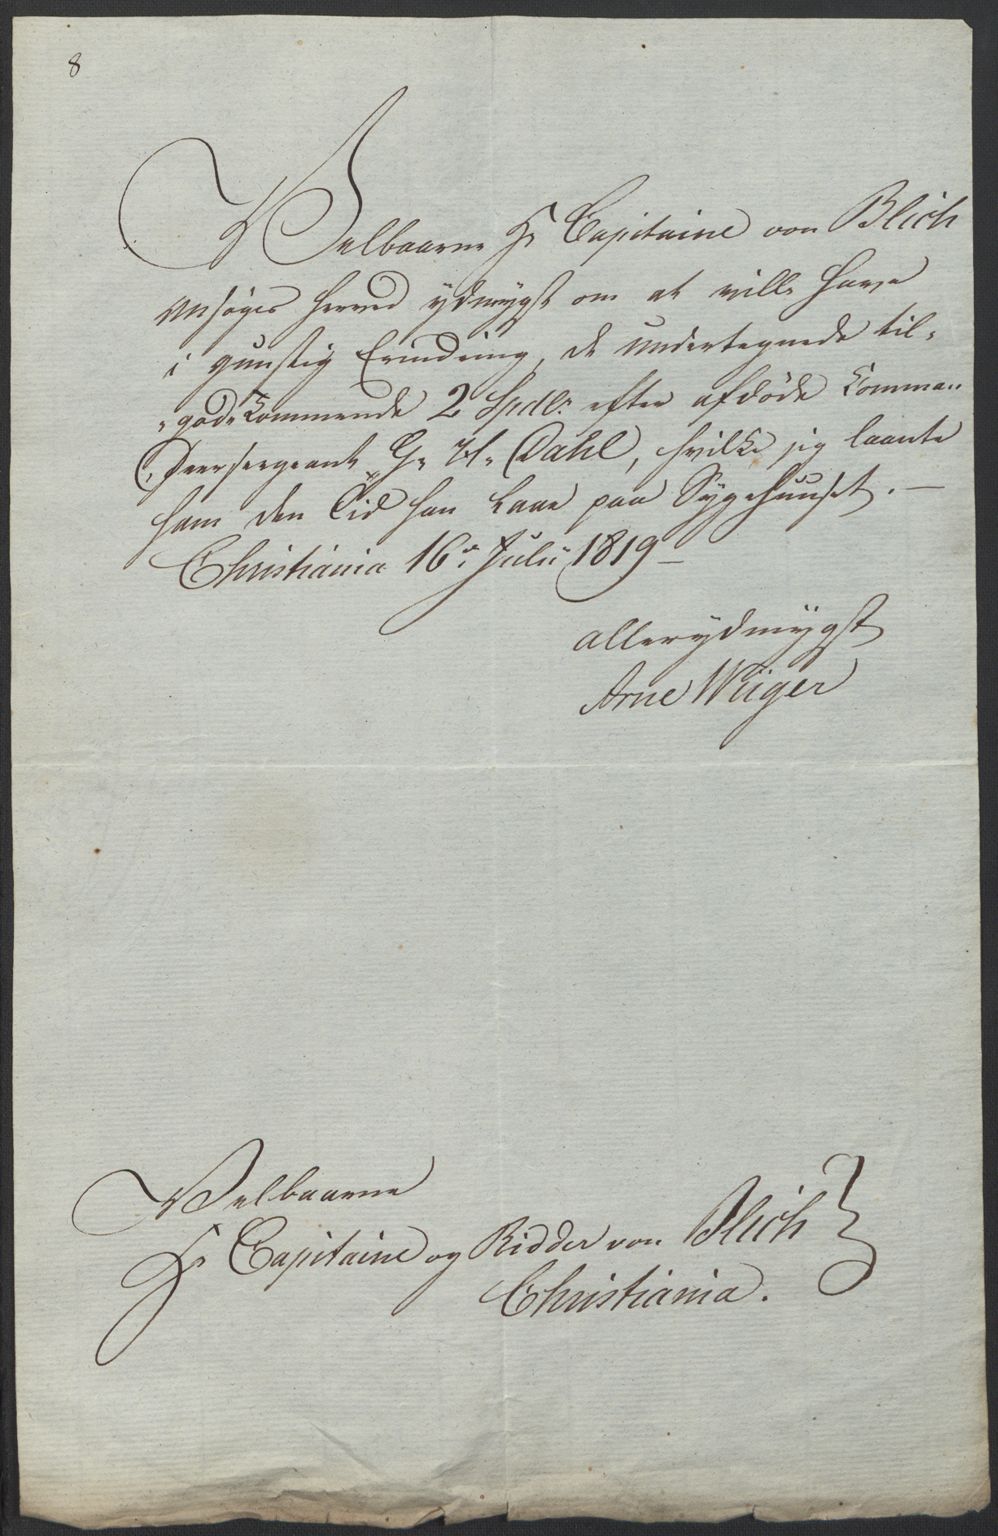 8
Velbaarne Hr Capitaine von Blich
ansøges herved ydmygst om at ville have
i gunstig Erindring, de undertegnede til-
-godekommende 2 Spdl: efter afdöde Komman-
-deersergeant G. H. Dahl, hvilke jeg laante
ham den Tid han laae paa Sygehuuset. —
Christiania 16de Julii 1819 —
allerydmygst
Arne Wiiger
Velbaarne
Hr Capitaine og Ridder von Blich
Christiania.